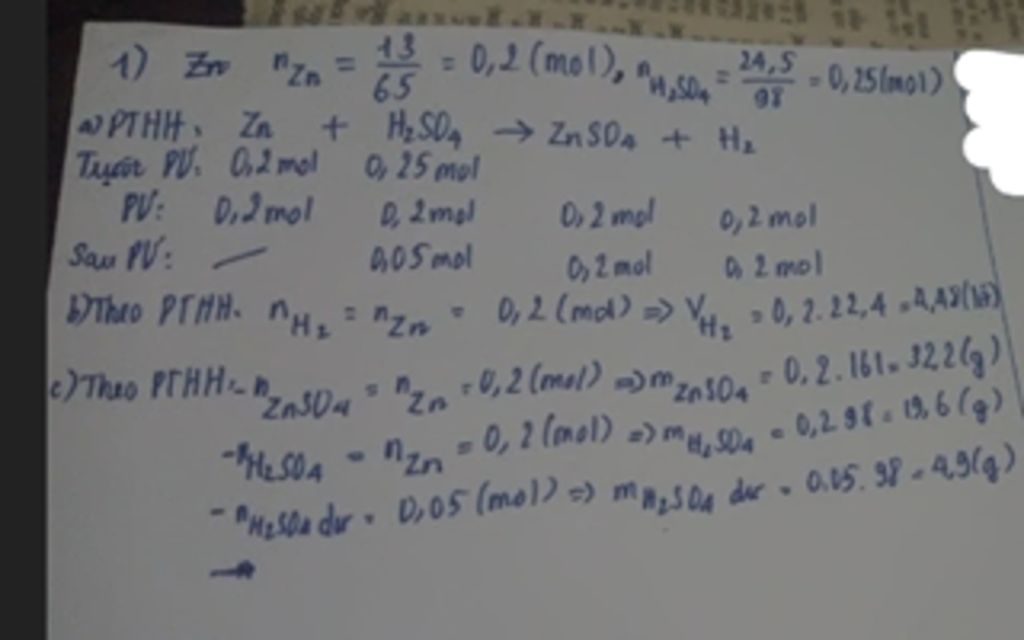 1) Zn n Zn = 13/65 = 0,2 (mol), n H2SO4 = 24,5/98 = 0,25(mol)
a) PTHH: Zn + H2SO4 → ZnSO4 + H2
Trước PƯ: 0,2mol 0,25mol
PƯ: 0,2mol 0,2mol 0,2mol 0,2mol
Sau PƯ: — 0,05mol 0,2mol 0,2mol
b) Theo PTHH: n H2 = n Zn = 0,2 (mol) => V H2 = 0,2.22,4 = 4,48(lít)
c) Theo PTHH: - n ZnSO4 = n Zn = 0,2(mol) => m ZnSO4 = 0,2.161 = 32,2(g)
- n H2SO4 = n Zn = 0,2 (mol) => m H2SO4 = 0,2.98 = 19,6(g)
- n H2SO4 dư = 0,05 (mol) => m H2SO4 dư = 0,05.98 = 4,9(g)